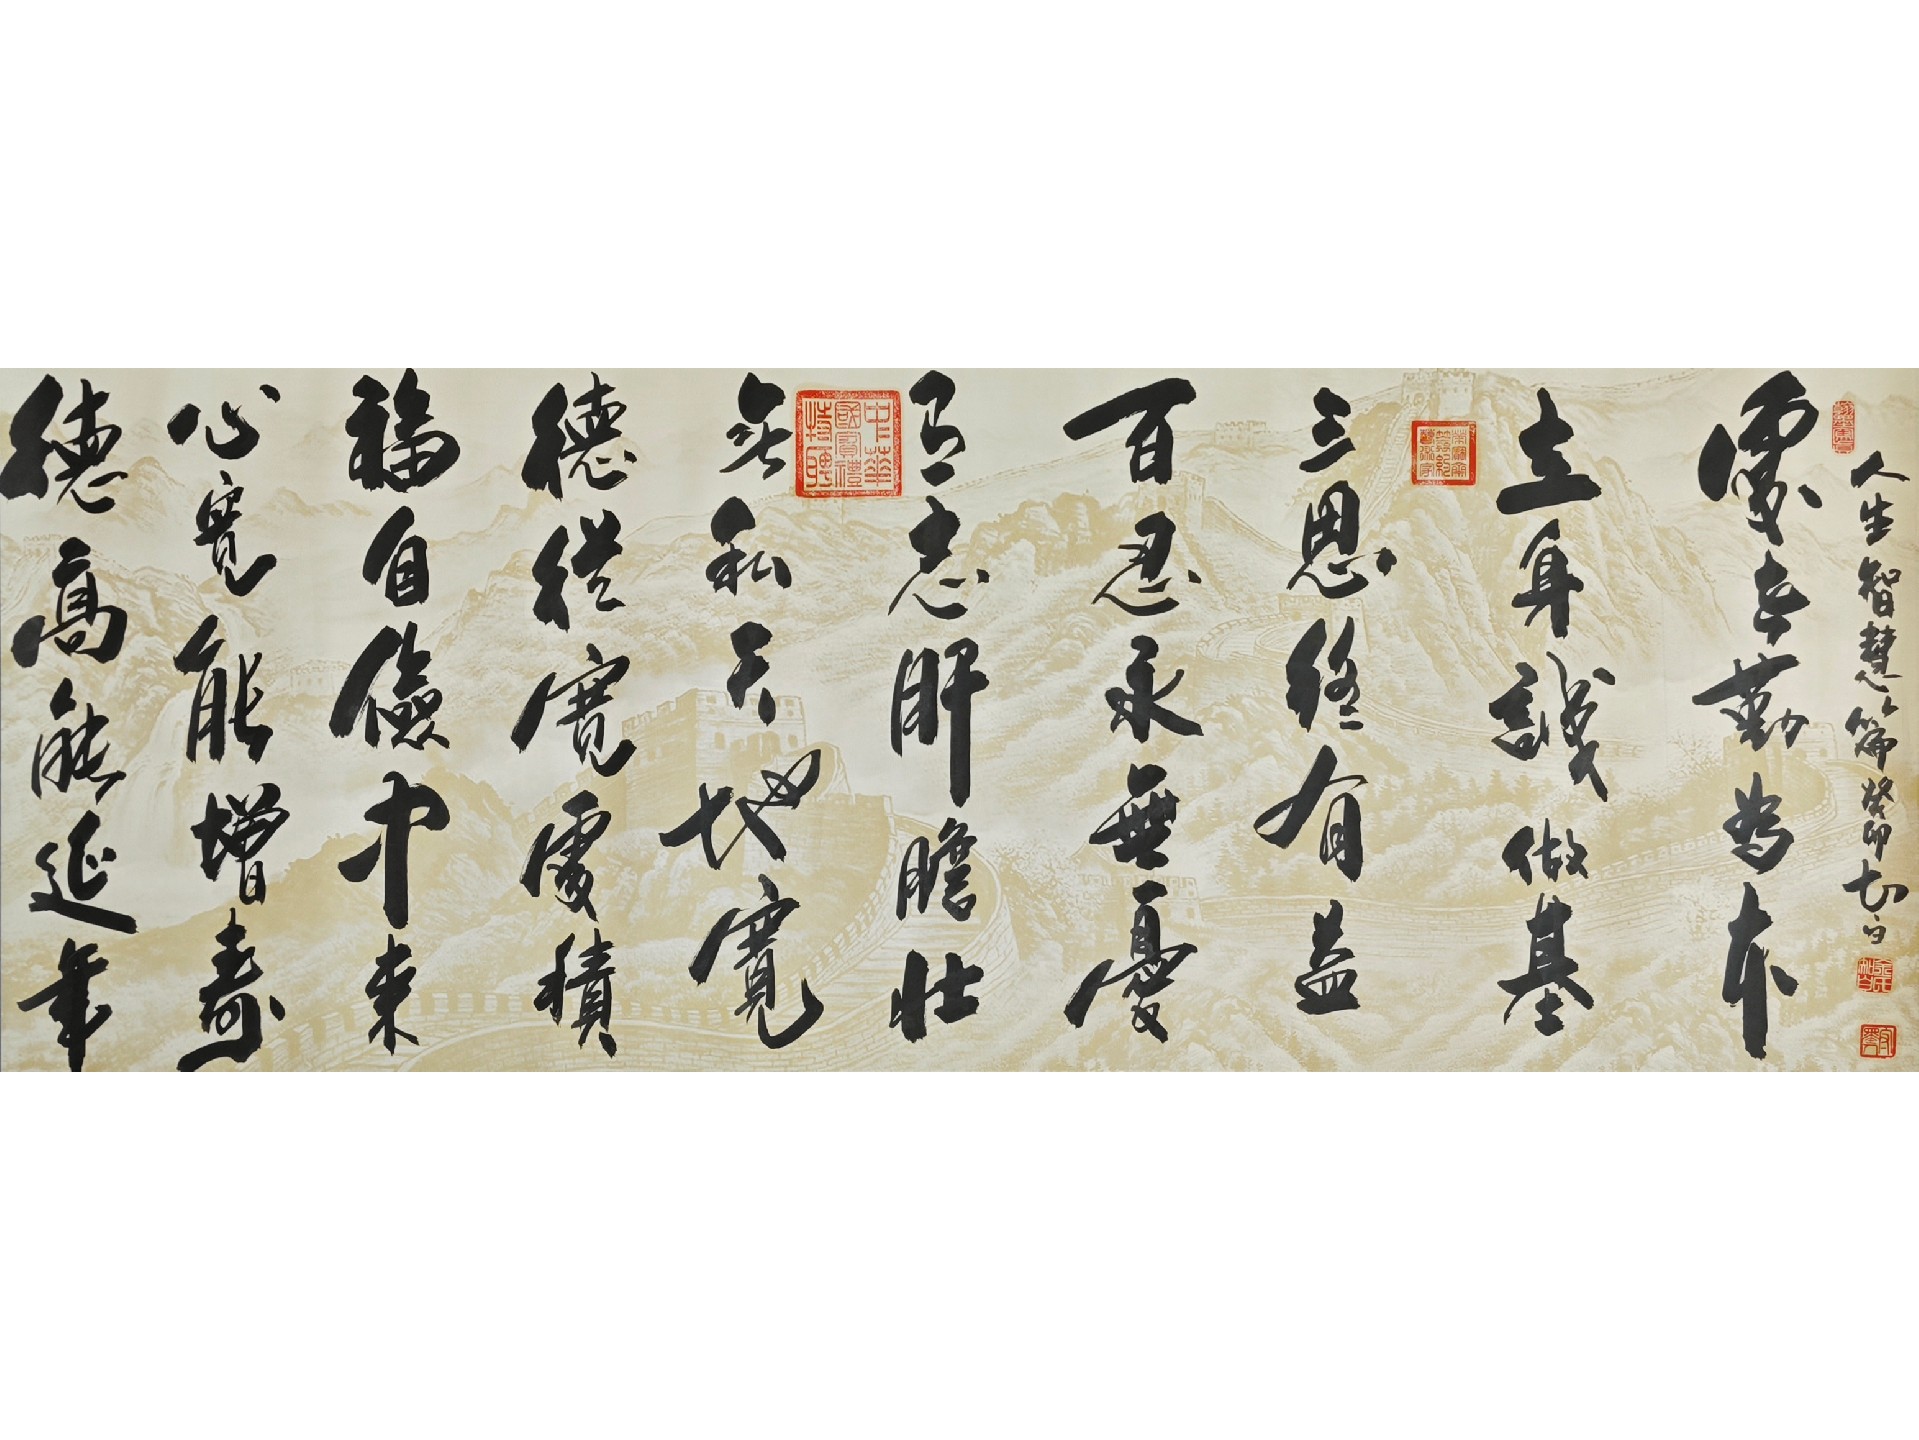 人生智慧篇 癸卯
處世勤為本
立身誠做基
三思終有益
百忍永無憂
有志肝膽壯
无私天地寬
德從寬處積
福自儉中來
心寬能增壽
德高能延年
中華國賓禮特聘